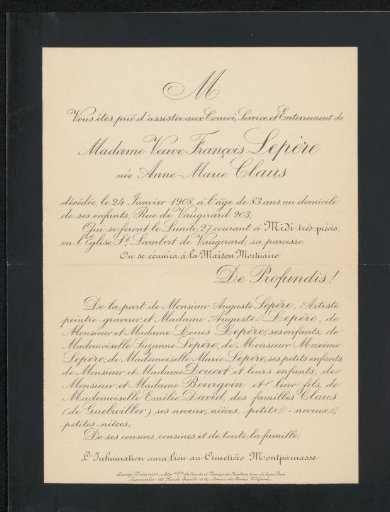 M
Vous êtes prié d'assister aux Convoi, Service et Enterrement de
Madame Veuve François Lepère
née Anne-Marie Claus
décédée le 24 Janvier 1908, à l'âge de 83 ans au domicile
de ses enfants, Rue de Vaugirard 203,
Qui se feront le Lundi, 27 courant à Midi très précis,
en l'Eglise St Lambert de Vaugirard, sa paroisse.
On se réunira à la Maison Mortuaire
De Profundis!
De la part de Monsieur Auguste Lepère, Artiste
peintre-graveur et Madame Auguste Lepère, de
Monsieur et Madame Louis Lepère, ses enfants, de
Mademoiselle Suzanne Lepère, de Monsieur Maxime
Lepère, de Mademoiselle Marie Lepère, ses petits enfants,
de Monsieur et Madame Doucet et leurs enfants, de
Monsieur et Madame Bourgoin et leur fils, de
Mademoiselle Emilie David, des familles Claus
(de Guebwiller) ses neveux, nièces, petits-neveux,
petites-nièces.
De ses cousins, cousines et de toute la famille.
L'Inhumation aura lieu au Cimetière Montparnasse